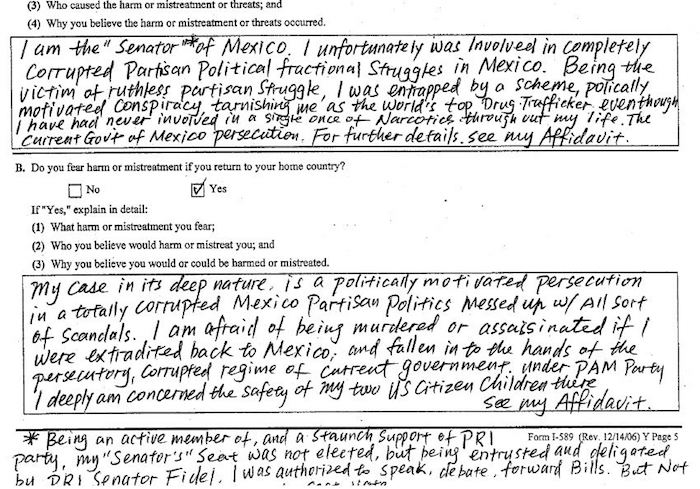 (3) Who caused the harm or mistreatment or threats; and
(4) Why you believe the harm or mistreatment or threats occurred.
I am the "Senator"* of Mexico. I unfortunately was Involved in completely
Corrupted Partisan Political fractional Struggles in Mexico. Being the
victim of ruthless partisan Struggle, I was entrapped by a scheme, polically
motivated conspiracy, tarnishing me as the World's top Drug Trafficker even though
I have had never involved in a single once of Narcotics through out my life. The
Current Gov't of Mexico persecution. For further details. see my Affidavit.
B. Do you fear harm or mistreatment if you return to your home country?
No Yes
If "Yes," explain in detail:
(1) What harm or mistreatment you fear;
(2) Who you believe would harm or mistreat you; and
(3) Why you believe you would or could be harmed or mistreated.
My case in its deep nature, is a politically motivated persecution
in a totally corrupted Mexico Partisan Politics Messed up w/ All sort
of Scandals. I am afraid of being murdered or assaisinated if I
were extradited back to Mexico, and fallen in to the hands of the
persecutory, Corrupted regime of current government. under PAM Party
I deeply am concerned the safety of my two US Citizen Children there
See my Affidavit.
* Being an active member of, and a Staunch Support of PRI
Form I-589 (Rev. 12/14/06) Y Page 5
party, my "Senator's" Seat was not elected, but being entrusted and deligated
by PRI Senator Fidel. I was authorized to speak, debate, forward Bills. But Not